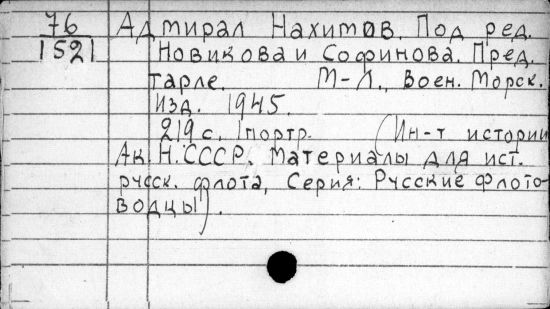 76 Адмирал Нахимов. Под ред.
1521 Новикова и Софинова. Пред.
Тарле. М-Л., Воен. Морск.
Изд. 1945.
219 с. 1 портр. (Ин-т истории
Ак. Н. СССР. Материалы для ист.
русск. флота, Серия: Русские флото-
водцы).